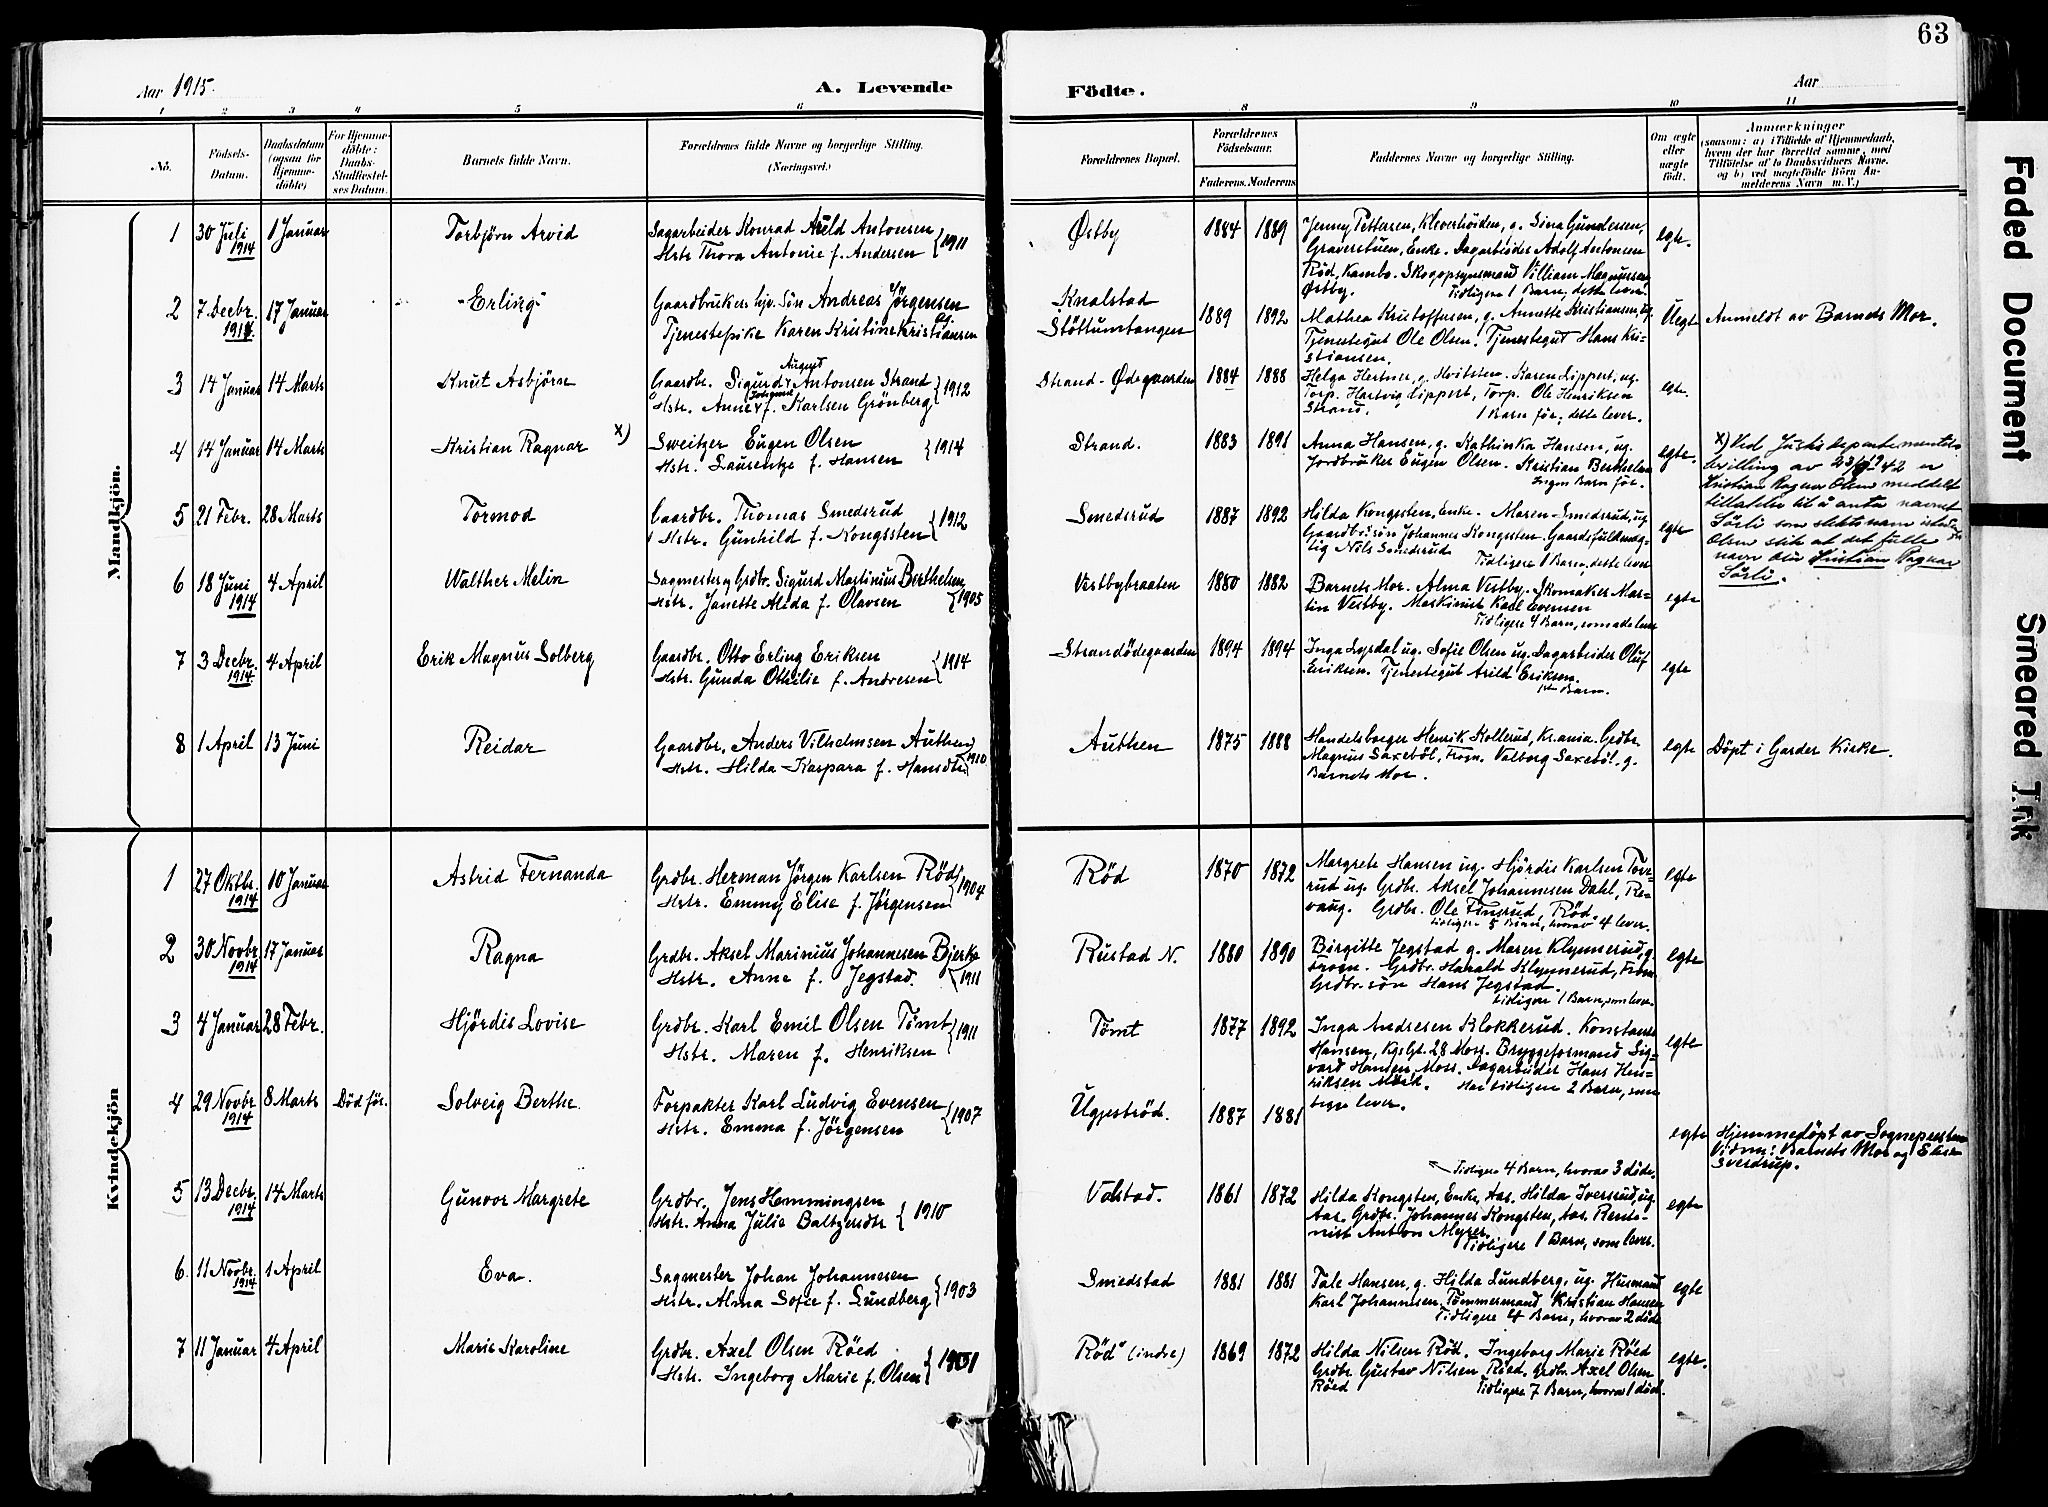 63
Aar 1915.
A. Levende
Födte.
Aar
1 2 3 4 5 6 8 9 10 11
No.
Födsels-
Datum.
Daabsdatum
(ogsaa for
Hjemme-
döbte)
For Hjemme-
döbte:
Daabs-
Stadfæstel-
ses Datum.
Barnets fulde Navn.
Forældrenes fulde Navne og borgerlige Stilling.
(Næringsvei.)
Forældrenes Bopæl.
Forældrenes
Födselsaar.
Faderens. Moderens
Faddernes Navne og borgerlige Stilling.
Om ægte
eller
uægte
födt.
Anmærkninger
(saasom: a) i Tilfælde af Hjemmedaab,
hvem der har forrettet samme, med
Tilföielse af to Daabsvidners Navne.
og b) ved uægtefödte Börn An-
melderens Navn m. V.)
Mandkjön.
1 30 Juli 1914 1 Januar Torbjörn Arvid
Sagarbeider Konrad Arild Antonsen
Hstr. Thora Antonie f. Andersen 1911
Østby 1884 1889
Jenny Pettersen, Kleverhöiden, g. Sina Gundersen,
Graverstuen, Enke. Dagarbeider Adolf Antonsen
Röd, Kambo. Skogopsynsmand Villiam Magnussen
Østby. Tidligere 1 Barn, dette lever.
egte.
2 7 Decbr. 1914 17 Januar Erling
Gaardbrukers hjv. Sön Andreas Jörgensen
og
Tjenestepike Karen Kristine Kristiansen
Knalstad
Stöttumtangen 1889 1892
Mathea Kristoffersen, g. Annette Kristiansen, ug.
Tjenestegut Ole Olsen. Tjenestegut Hans Kri-
stiansen.
Uegte Anmeldt av Barnets Mor.
3 14 Januar 14 Marts Knut Asbjörn
August
Gaardbr. Sigurd Antonsen Strand
Hstr. Anne f. Karlsen Grönberg 1912
Strand-Ødegaarden 1884 1888
Helga Hertner, g. Hvitsten. Karen Lippert, ug.
Torp. Hartvig Lippert, Torp. Ole Henriksen
Strand. 1 Barn för; dette lever.
egte.
4 14 Januar 14 Marts Kristian Ragnar x)
Sveitzer Eugen Olsen
Hstr. Laurentze f. Hansen 1914
Strand. 1883 1891
Anna Hansen, g. Kathinka Hansen, ug.
Jordbruker Eugen Olsen. Kristian Berthelsen
Ingen Barn för.
egte.
x) Ved Justisdepartementets
bevilling av 23/1 1942 er
Kristian Ragnar Olsen meddelt
tillatelse til å anta navnet
Sörli som slektsnavn istedenfor
Olsen slik at det fulle
navn blir Kristian Ragnar
Sörli.
5 21 Febr. 28 Marts Tormod
Gaardbr. Thomas Smedsrud
Hstr. Gunhild f. Kongssten 1912
Smedsrud 1887 1892
Hilda Kongsten, Enke. Maren Smedsrud, ug.
Gaardbr. sön Johannes Kongsten. Gaardsfuldmæg-
tig Nils Smedsrud
Tidligere 1 Barn, dette lever
egte
6 18 Juni 1914 4 April Walther Melin
Sagmester, Grdbr. Sigurd Martinius Berthelsen
Hstr. Janette Alida f. Olavsen 1905
Vestbybraaten 1880 1882
Barnets Mor. Alma Vestby. Skomaker Mar-
tin Vestby. Maskinist Karl Evensen
Tidligere 4 Barn, som alle lever
egte
7 3 Decbr. 1914 4 April Erik Magnus Solberg
Gaardbr. Otto Erling Eriksen
Hstr. Gunda Othilie f. Andresen 1914
Strandödegaarden 1894 1894
Inga Lysdal ug. Sofie Olsen ug. Dagarbeider Oluf
Eriksen. Tjenestegut Arild Eriksen.
1ste Barn.
egte
8 1 April 13 Juni Reidar
Gaardbr. Anders Vilhelmsen Authen
Hstr. Hilda Kaspara f. Hansdtr. 1910
Authen 1875 1888
Handelsborger Henrik Kollerud, Kr.ania. Grdbr.
Magnus Saxeböl, Frogn. Valborg Saxeböl, g.
Barnets Mor.
egte Döpt i Garder Kirke.
Kvindekjön
1 27 Oktbr. 1914 10 Januar Astrid Fernanda
Grdbr. Herman Jörgen Karlsen Röd
Hstr. Emmy Elise f. Jörgensen 1904
Röd 1870 1872
Margrete Hansen ug. Hjördis Karlsen Tov-
rud ug. Grdbr. Aksel Johannesen Dahl, Re-
vaug. Grdbr. Ole Finsrud, Röd.
tidligere 5 Börn, hvorav 4 lever.
egte
2 30 Novbr. 1914 17 Januar Ragna
Grdbr. Aksel Marinius Johannesen Bjerke
Hstr. Anne f. Jegstad. 1911
Rustad N. 1880 1890
Birgitte Jegstad g. Maren Klynnerud, g.
Frogn. Grdbr. Harald Klynnerud, Frogn.
Grdbr. sön Hans Jegstad.
tidligere 1 Barn, som lever.
egte
3 4 Januar 28 Febr. Hjördis Lovise
Grdbr. Karl Emil Olsen Tömt
Hstr. Maren f. Henriksen 1911
Tömt 1877 1892
Inga Andresen Klokkerud. Konstanse
Hansen, Kgsgt. 28 Moss. Bryggeformand Sig-
vard Hansen, Moss. Dagarbeider Hans Hen-
riksen Mörk. Har tidligere 2 Barn, som
begge lever.
egte
4 29 Novbr. 1914 8 Marts Död för. Solveig Berthe
Forpakter Karl Ludvig Evensen
Hstr. Emma f. Jörgensen 1907
Uggeströd. 1887 1881
Tidligere 4 Barn, hvorav 3 döde.
egte Hjemmedöpt av Sognepresten
Vidner: Barnets Mor og Elise
Sverdrup.
5 13 Decbr. 1914 14 Marts Gunvor Margrete
Grdbr. Jens Hemmingsen
Hstr. Anna Julie Baltzersdtr 1910
Volstad. 1861 1872
Hilda Kongsten, Enke, Aas. Hilda Iversrud, ug.
Aas. Grdbr. Johannes Kongsten, Aas. Rente-
nist Anton Myrer.
Tidligere 1 Barn, som lever.
egte
6. 11 Novbr. 1914 1 April Eva.
Sagmester Johan Johannesen
Hstr. Alma Sofie f. Lundberg 1903
Smedstad 1881 1881
Tale Hansen, g. Hilda Lundberg, ug. Husmand
Karl Johannesen. Tömmermand Kristian Hansen
Tidligere 4 Barn, hvorav 2 döde
egte
7 11 Januar 4 April Marie Karoline
Grdbr. Axel Olsen Röed
Hstr. Ingeborg Marie f. Olsen 1901
Röd (indre) 1869 1872
Hilda Nilsen Röd. Ingeborg Marie Röed
Grdbr. Gustav Nilsen, Röed. Grdbr. Axel Olsen
Röed Tidligere 7 Barn, hvorav 1 död.
egte.
Faded Document
Smeared Ink